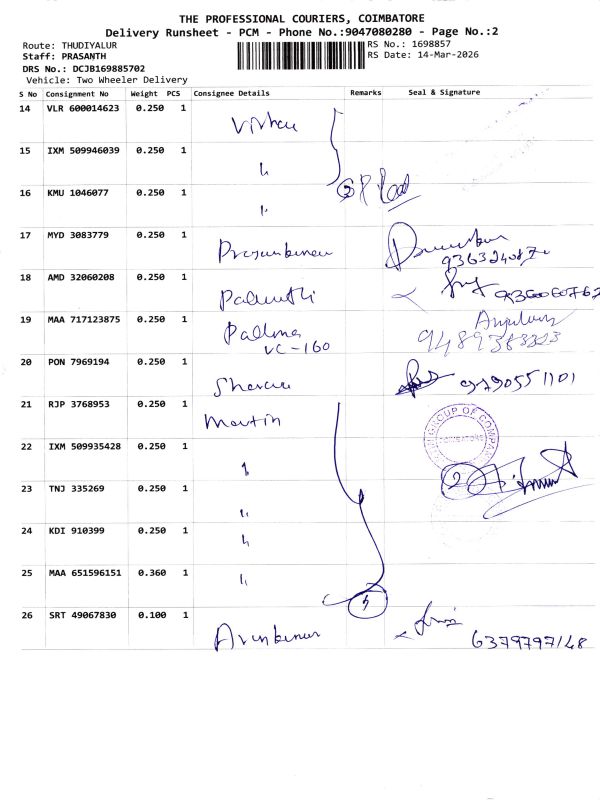 THE PROFESSIONAL COURIERS, COIMBATORE
Delivery Runsheet - PCM - Phone No.:9047080280 - Page No.:2
Route: THUDIYALUR
RS No.: 1698857
Staff: PRASANTH
RS Date: 14-Mar-2026
DRS No.: DCJB169885702
Vehicle: Two Wheeler Delivery
S No Consignment No Weight PCS Consignee Details Remarks Seal & Signature
14 VLR 600014623 0.250 1
15 IXM 509946039 0.250 1
16 KMU 1046077 0.250 1
17 MYD 3083779 0.250 1
18 AMD 32060208 0.250 1
19 MAA 717123875 0.250 1
VC-160
20 PON 7969194 0.250 1
9790551101
21 RJP 3768953 0.250 1 Martin
GROUP OF COMPAN
COIMBATORE
22 IXM 509935428 0.250 1
23 TNJ 335269 0.250 1
24 KDI 910399 0.250 1
25 MAA 651596151 0.360 1
5
26 SRT 49067830 0.100 1
6379797148